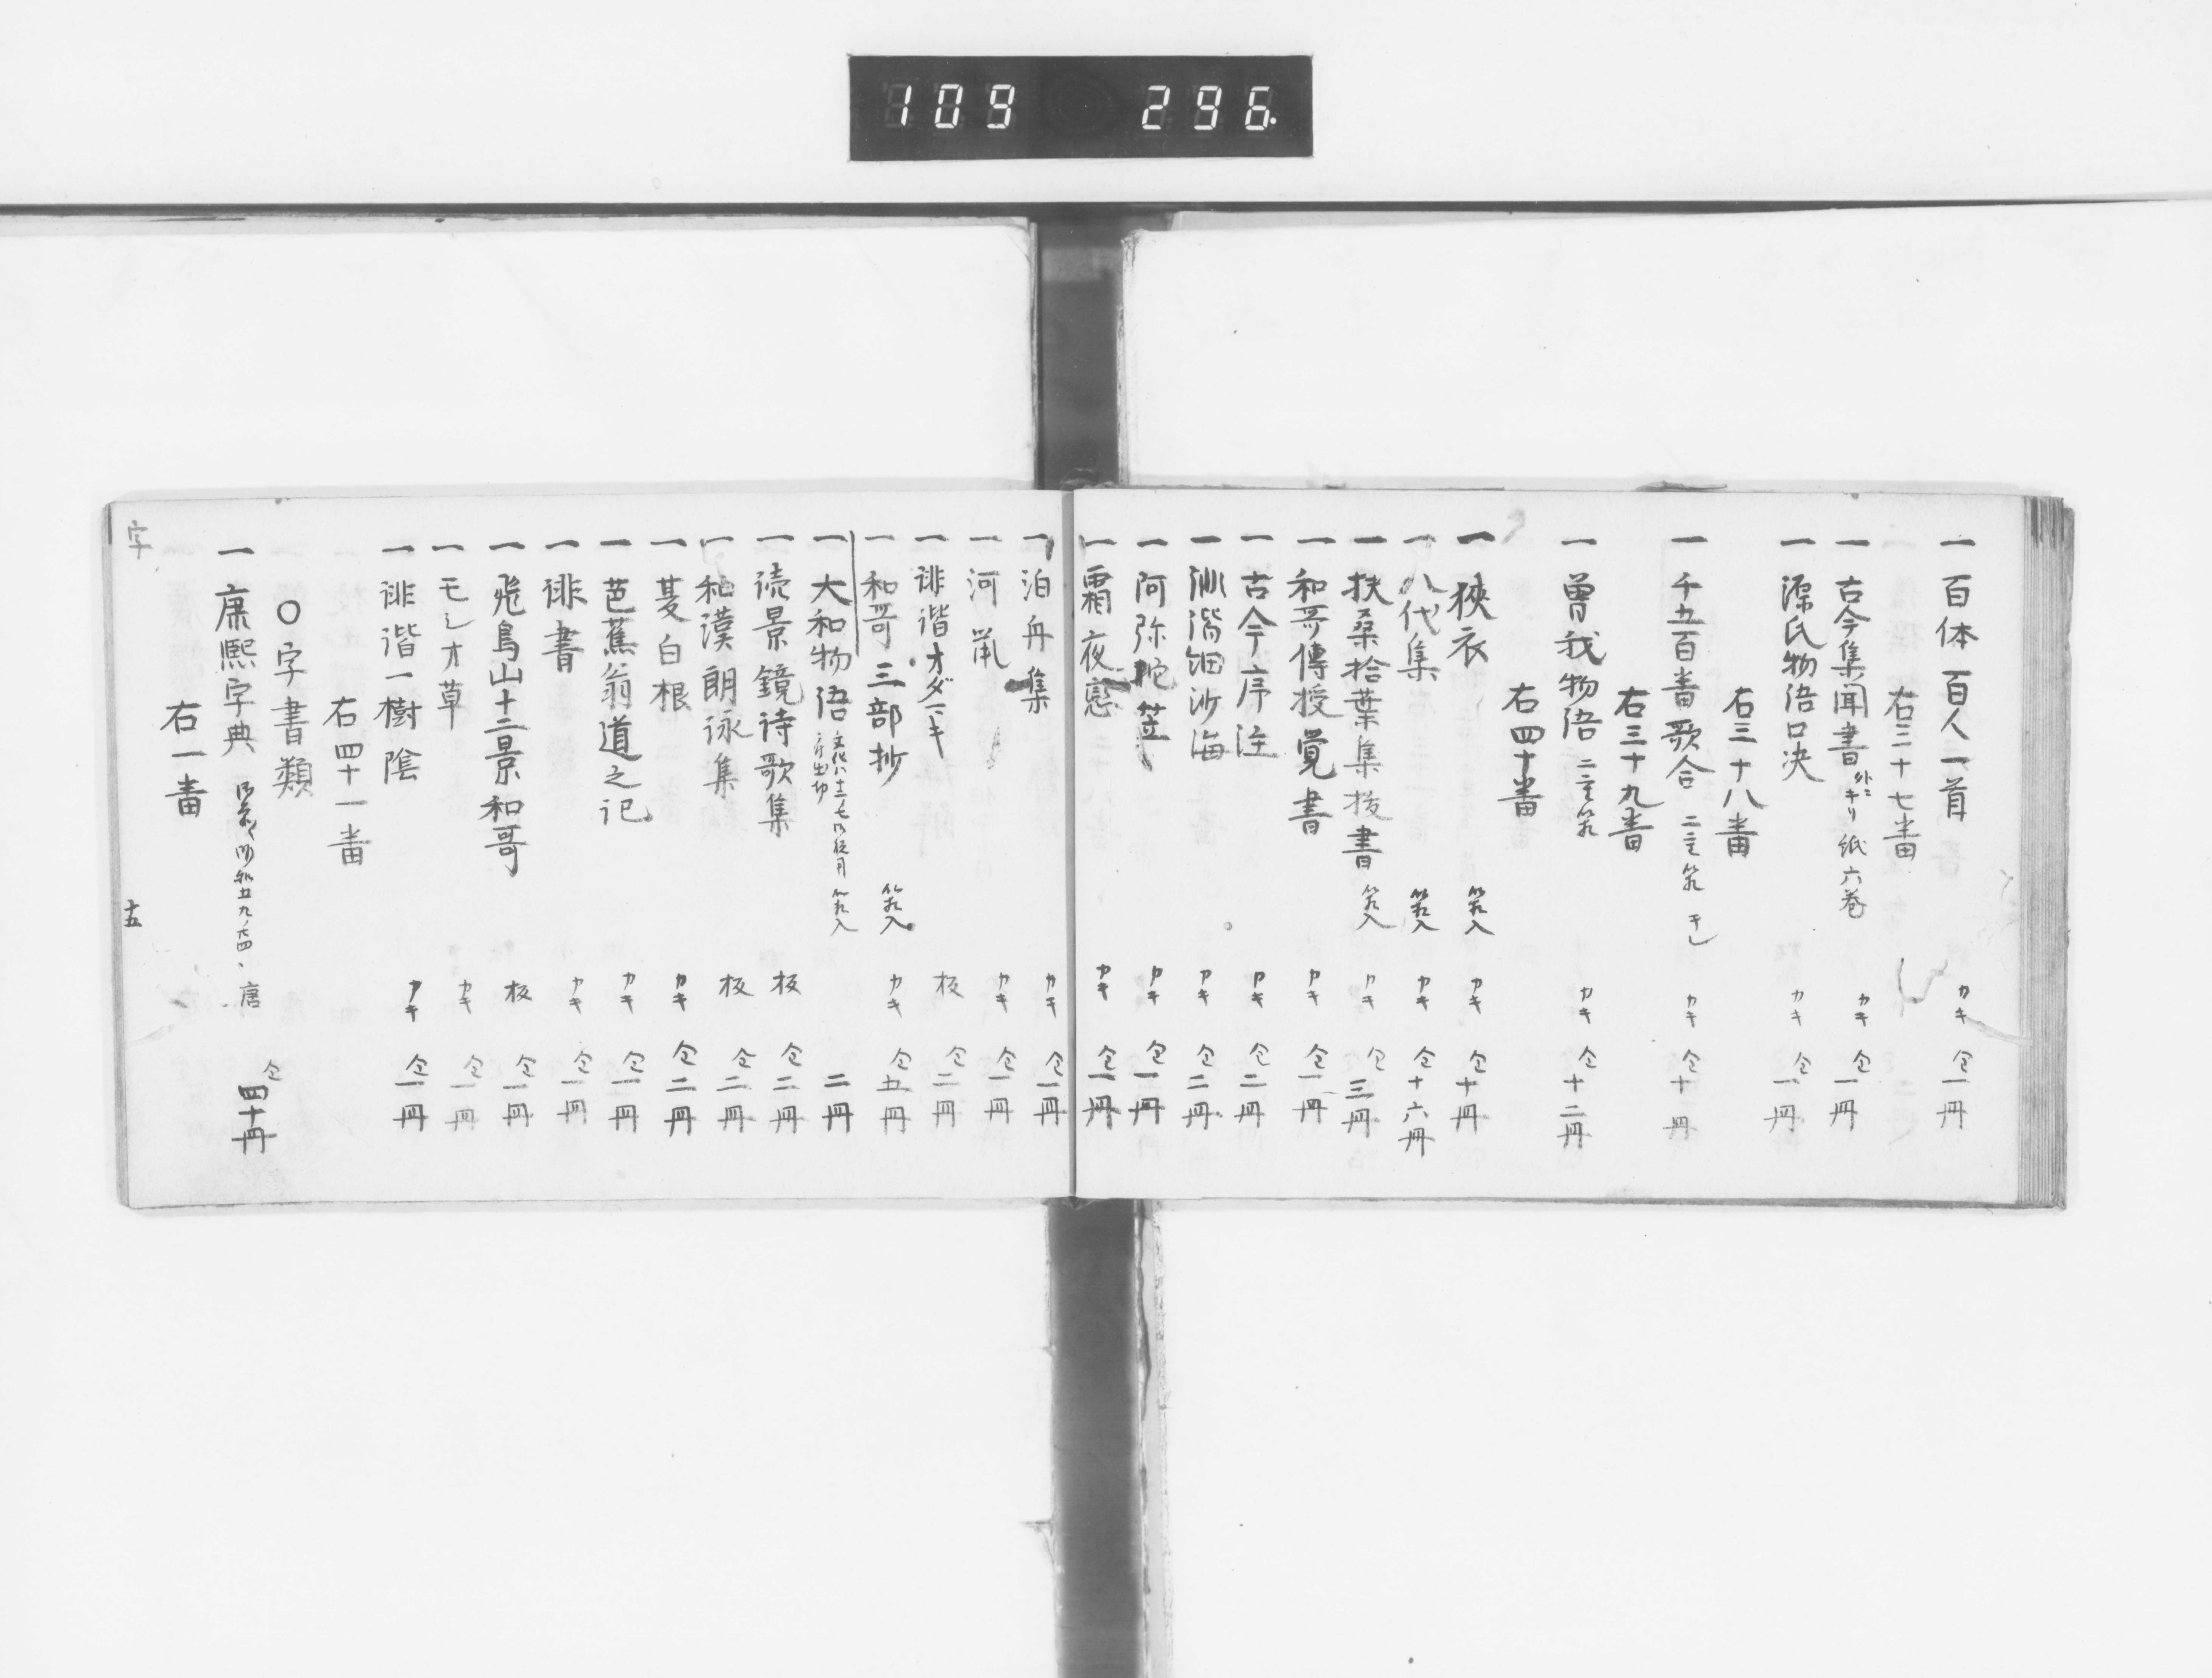 109 296.
一百体百人一首 カキ 仝一冊
右三十七番
一古今集聞書 外ニキリ紙六巻 カキ 仝一冊
一源氏物语口决 カキ 仝一冊
右三十八番
一千五百番歌合 カキ 仝十冊
右三十九番
一曽我物语 カキ 仝十二冊
右四十番
一狹衣 箱入 カキ 仝十冊
一八代集 箱入 カキ 仝十六冊
一扶桑拾葉集抜書 箱入 カキ 仝三冊
一和哥傳授覚書 カキ 仝一冊
一古今序注 カキ 仝二冊
一 カキ 仝二冊
一阿弥陀笠 カキ 仝一冊
一霜夜戀 カキ 仝一冊
一泊舟集 カキ 仝一冊
一河 カキ 仝一冊
一诽谐オダマキ 板 仝二冊
一和哥三部抄 箱入 カキ 仝五冊
一大和物语 箱入 二冊
一读景鏡诗歌集 板 仝二冊
一和漢朗詠集 板 仝二冊
一蔓白根 カキ 仝二冊
一芭蕉翁道之记 カキ 仝一冊
一诽書 カキ 仝一冊
一飛鳥山十二景和哥 板 仝一冊
一モシオ草 カキ 仝一冊
一诽谐一樹陰 カキ 仝一冊
右四十一番
〇字書類
一康熙字典 唐 仝四十冊
右一番
字
十五